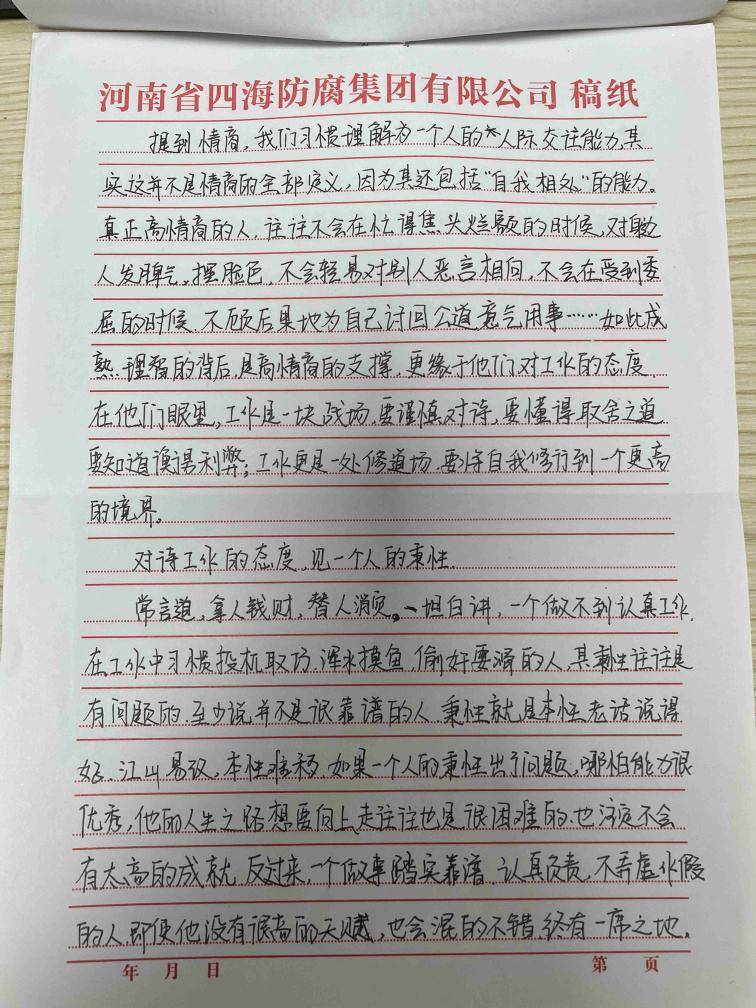 河南省四海防腐集团有限公司 稿纸
提到情商，我们习惯理解为一个人的人际交往能力，其
实这并不是情商的全部定义，因为其还包括“自我相处”的能力。
真正高情商的人，往往不会在忙得焦头烂额的时候，对他
人发脾气，摆脸色，不会轻易对别人恶言相向，不会在受到委
屈的时候，不顾后果地为自己讨回公道，意气用事……如此成
熟、理智的背后，是高情商的支撑，更缘于他们对工作的态度，
在他们眼里，工作是一块战场，要谨慎对待，要懂得取舍之道
要知道得利弊；工作更是一处修道场，要将自我修行到一个更高
的境界。
对待工作的态度，见一个人的秉性。
常言道，拿人钱财，替人消灾。坦白讲，一个做不到认真工作，
在工作中习惯投机取巧，浑水摸鱼，偷奸耍滑的人，其秉性往往是
有问题的，至少说并不是很靠谱的人。秉性就是本性，老话说得
好，江山易改，本性难移，如果一个人的秉性出了问题，哪怕能力很
优秀，他的人生之路想要向上走往往也是很困难的，也注定不会
有太高的成就，反过来，一个做事踏实靠谱，认真负责，不弄虚作假
的人，即便他没有很高的天赋，也会混的不错，终有一席之地。
年 月 日 第 页